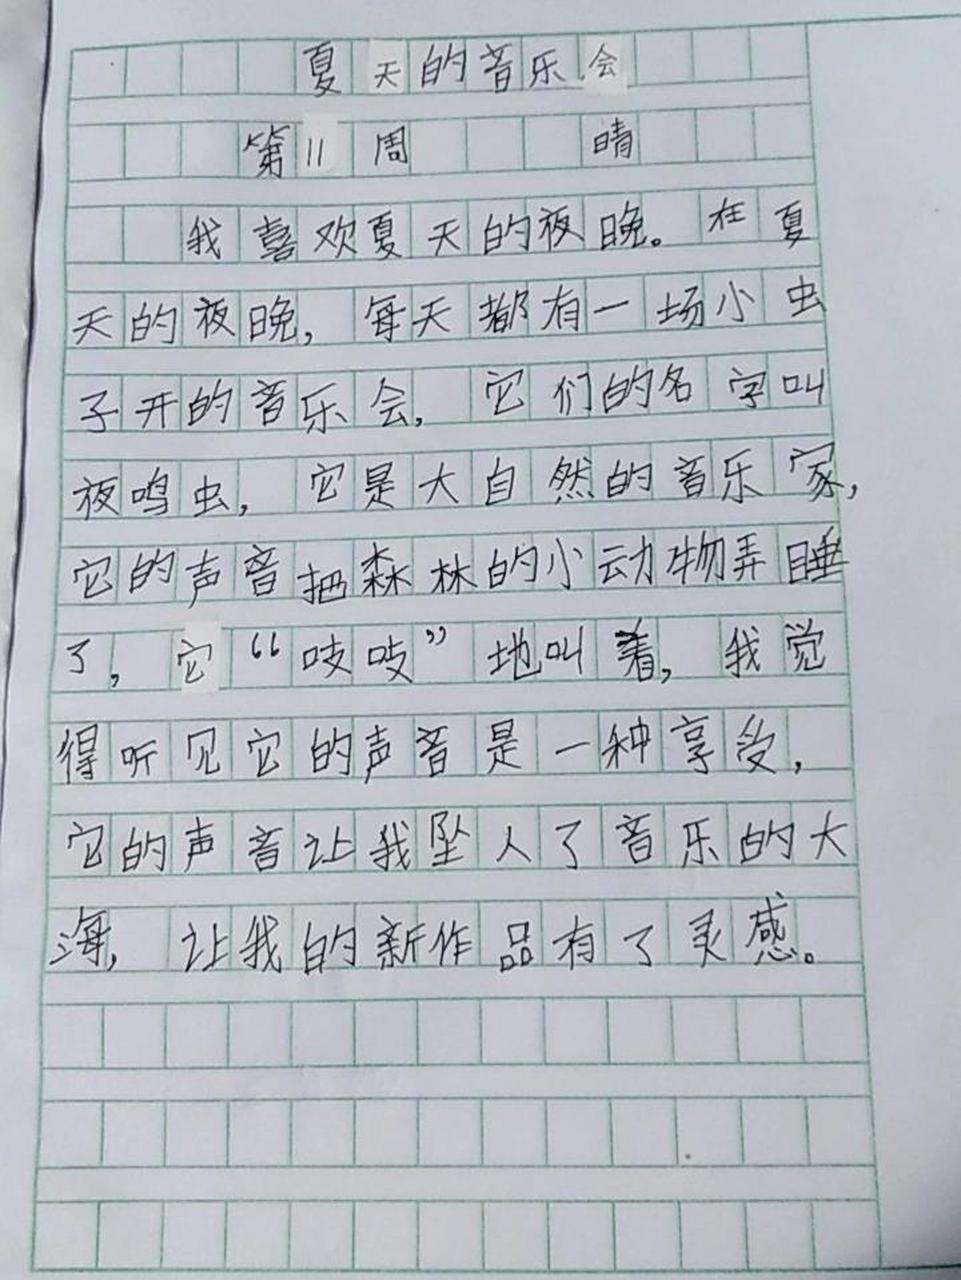 夏天的音乐会
第11周 晴
我喜欢夏天的夜晚。在夏
天的夜晚,每天都有一场小虫
子开的音乐会,它们的名字叫
夜鸣虫,它是大自然的音乐家,
它的声音把森林的小动物弄睡
了,它“吱吱”地叫着,我觉
得听见它的声音是一种享受,
它的声音让我坠入了音乐的大
海,让我的新作品有了灵感。